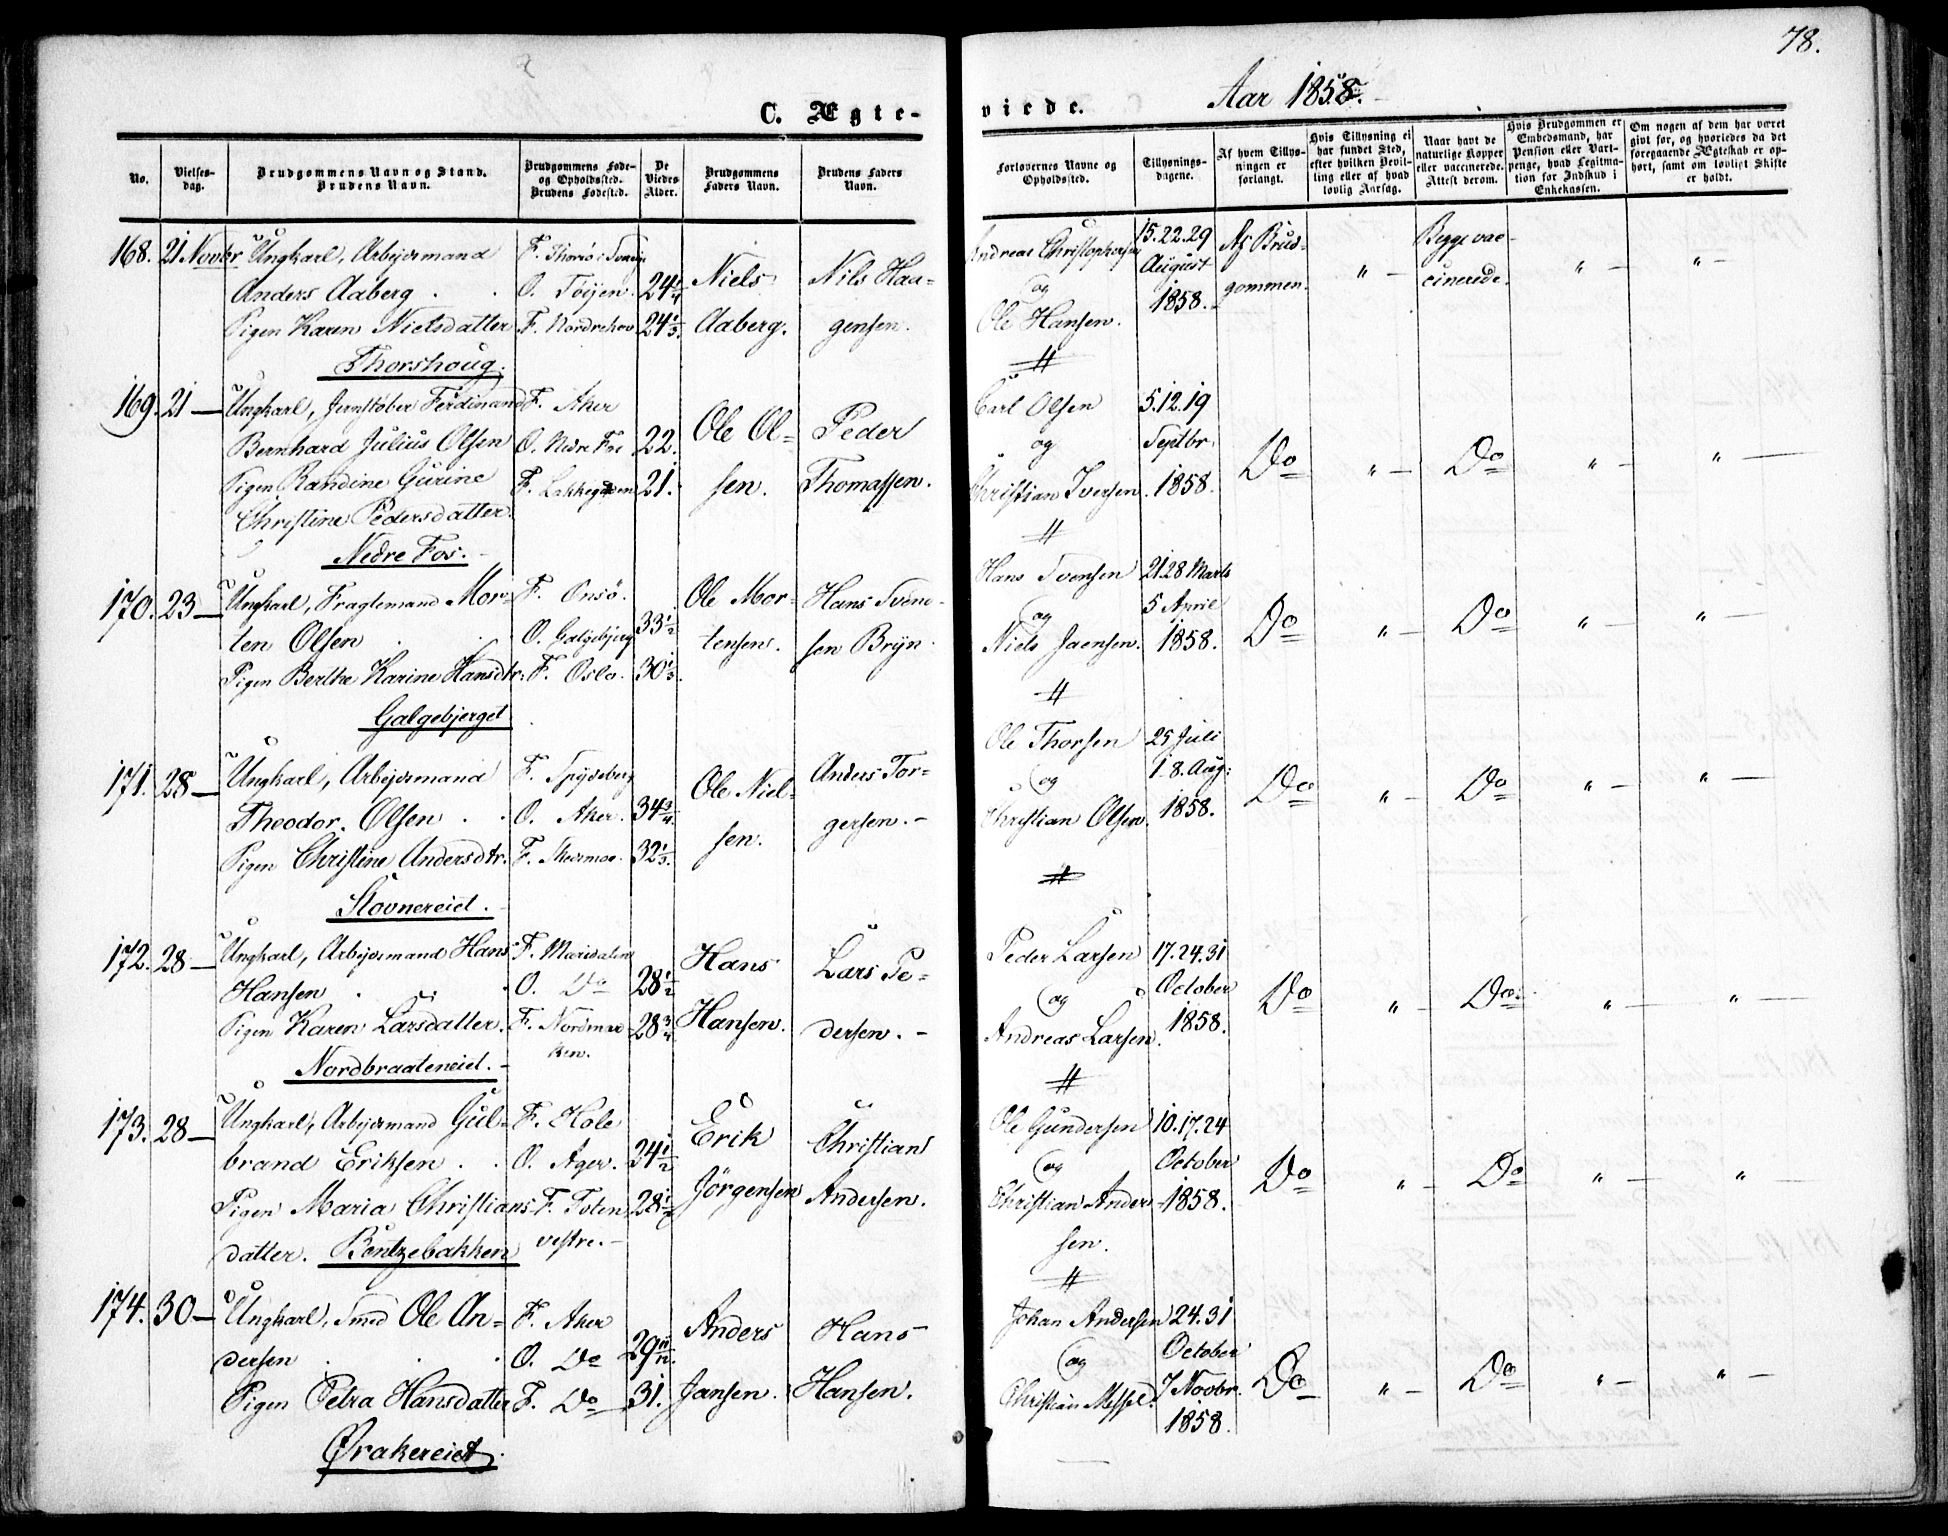 78.
C. Ægte-
viede.
Aar 1858.
No.
Vielses-
dag.
Brudgommens Navn og Stand.
Brudens Navn.
Brudgommens Føde-
og Opholdssted.
Brudens Fødested.
De
Viedes
Alder.
Brudgommens
Faders Navn.
Brudens Faders
Navn.
Forlovernes Navne og
Opholdssted.
Tillysnings-
dagene.
Af hvem Tillys-
ningen er
forlangt.
Hvis Tillysning ei
har fundet Sted,
efter hvilken Bevil-
ling eller af hvad
lovlig Aarsag.
Naar havt de
naturlige Kopper
eller vaccinerede.
Attest derom.
Hvis Brudgommen er
Embedsmand, har
Pension eller Vart-
penge, hvad Legitima-
tion for Indskud i
Enkekassen.
Om nogen af dem har været
givt før, og hvorledes da det
foregaaende Ægteskab er op-
hørt, samt om lovligt Skifte
er holdt.
168. 21 Novbr Ungkarl, Arbejdsmand
Anders Aaberg
Pigen Karen Nielsdatter
Thorshoug.
O. Töijen. 24 1/4
F. Nordrehov 24 1/3.
Niels
Aaberg.
Nils Haa-
gensen.
Andreas Christophersen
og
Ole Hansen.
15.22.29
August
1858.
Af Brud-
gommen.
" -
Begge vac-
cinerede.
" -
" -
169. 21 - Ungkarl, Jernstøber Ferdinand
Bernhard Julius Olsen
Pigen Randine Gurine
Christine Pedersdatter.
Nedre Fos.
F. Aker
O. Nedre Fos 22.
F. Lakkegaden 21.
Ole Ol-
sen.
Peder
Thomassen.
Carl Olsen
og
Christian Iversen.
5.12.19
Septbr.
1858.
Do
" -
Do
" -
" -
170. 23 - Ungkarl, Fragtemand Mor-
ten Olsen
Pigen Berthe Karine Hansdtr.
Galgebjerget
F. Onsö.
O. Galgebjerg 33 1/2
F. Oslo. 30 1/3.
Ole Mor-
tensen.
Hans Svend-
sen Bryn.
Hans Svensen
og
Niels Jaensen.
21.28 Marts
5 April
1858.
Do
" -
Do
" -
" -
171. 28 - Ungkarl, Arbejdsmand
Theodor Olsen
Pigen Christine Andersdtr.
Stovnereiet.
F. Spydeberg
O. Aker. 34 3/4.
F. 32 1/3.
Ole Niel-
sen.
Anders Tor-
gersen. -
Ole Thorsen
og
Christian Olsen.
25 Juli
1. 8. Aug:
1858.
Do
" -
Do
" -
" -
172. 28 - Ungkarl, Arbejdsmand Hans
Hansen
Pigen Karen Larsdatter.
Nordbraateneiet. -
F. Maridalen
O. Do 28 1/2
F. Nordmar- 28 3/4
ken.
Hans
Hansen.
Lars Pe-
dersen. -
Peder Larsen
og
Andreas Larsen.
17.24.31
October
1858.
Do
" -
Do.
" -
" -
173. 28 - Ungkarl, Arbejdsmand Gul-
brand Eriksen
Pigen Maria Christians-
datter. Bentzebakken
F. Hole
O. Ager. 24 1/2
F. Toten 28 1/2
vestre. -
Erik
Jörgensen
Christian
Andersen.
Ole Gundersen
og
Christian Ander-
sen.
10.17.24
October
1858.
Do
" -
Do
" -
" -
174. 30 - Ungkarl, Smed Ole An-
dersen
Pigen Petra Hansdatter
Ørakereiet.
F. Aker
O. Do 29 11/12.
F. Do 31.
Anders
Jansen.
Hans
Hansen.
Johan Andersen
og
Christian Messel.
24.31
October
7 Novbr.
1858.
Do
" -
Do
" -
" -